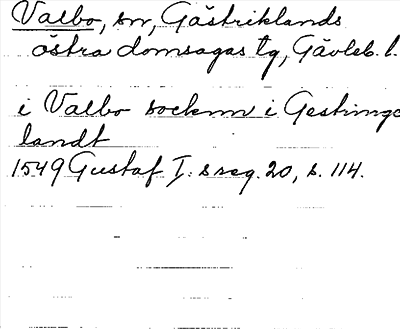 Valbo, sn, Gästriklands
östra domsagas tg, Gävleb. l.
i Valbo socknn i Gestringe
landt
1549 Gustaf I: s reg. 20, s. 114.